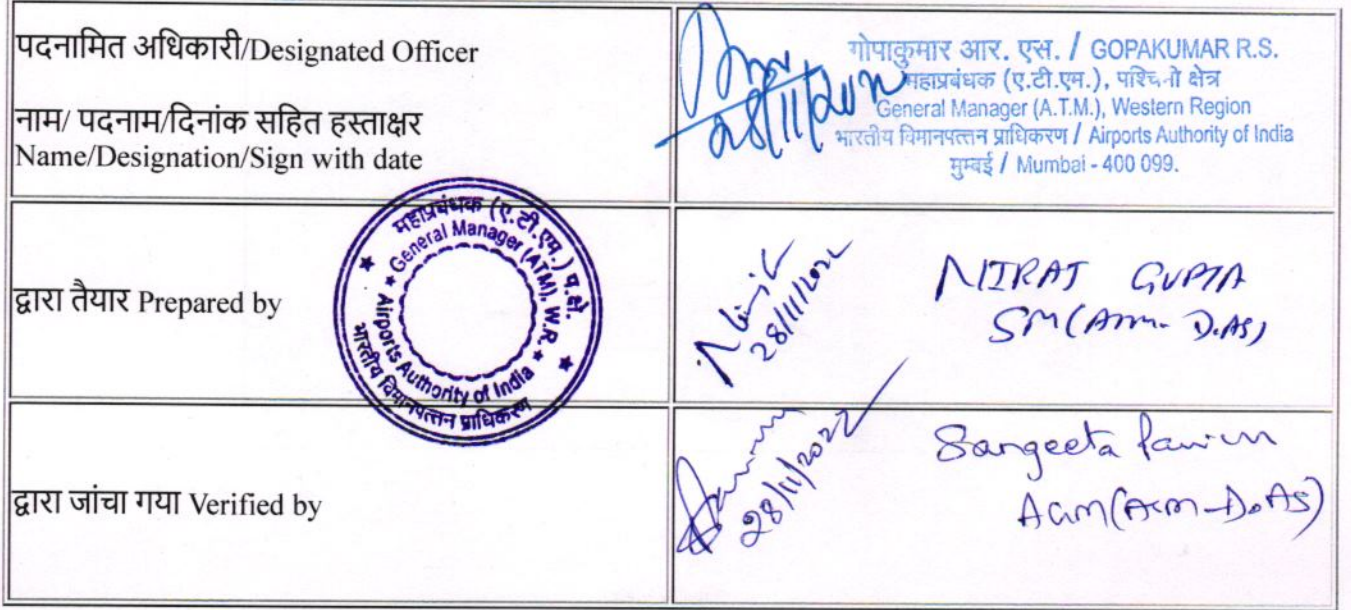 पदनामित अधिकारी/Designated Officer
नाम/ पदनाम/दिनांक सहित हस्ताक्षर
Name/Designation/Sign with date
28/11/2022
गोपाकुमार आर. एस. / GOPAKUMAR R.S.
महाप्रबंधक (ए.टी.एम.), पश्चिमी क्षेत्र
General Manager (A.T.M.), Western Region
भारतीय विमानपत्तन प्राधिकरण / Airports Authority of India
मुम्बई / Mumbai - 400 099.
द्वारा तैयार Prepared by
महाप्रबंधक (ए.टी.एम.) प.क्षे.
General Manager (ATM), W.R.
Airports Authority of India
भारतीय विमानपत्तन प्राधिकरण
28/11/2022
NIRAJ GUPTA
SM(ATM-DoAS)
द्वारा जांचा गया Verified by
28/11/2022
Sangeeta
AGM(ATM-DoAS)